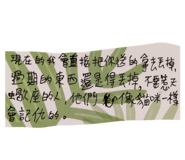 現在的我會直接把你送的拿去丟掉,
過期的東西還是得丟掉,不要惹天
蠍座的人,他們會像貓咪一樣
會記仇的。